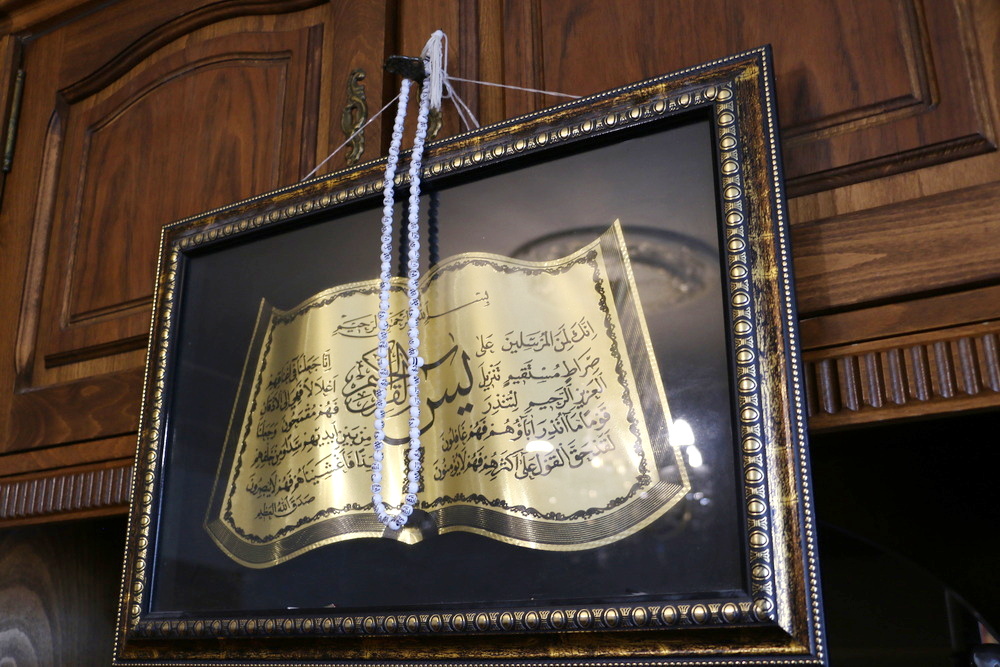 بسم الله الرحمن الرحيم
يس
إنك لمن المرسلين على
صراط مستقيم تنزيل
العزيز الرحيم لتنذر
قوما ما أنذر آباؤهم فهم غافلون
لقد حق القول على أكثرهم فهم لا يؤمنون
إنا جعلنا في أعناقهم
أغلالا فهي إلى الأذقان
فهم مقمحون وجعلنا
من بين أيديهم سدا ومن خلفهم
سدا فأغشيناهم فهم لا يبصرون
صدق الله العظيم